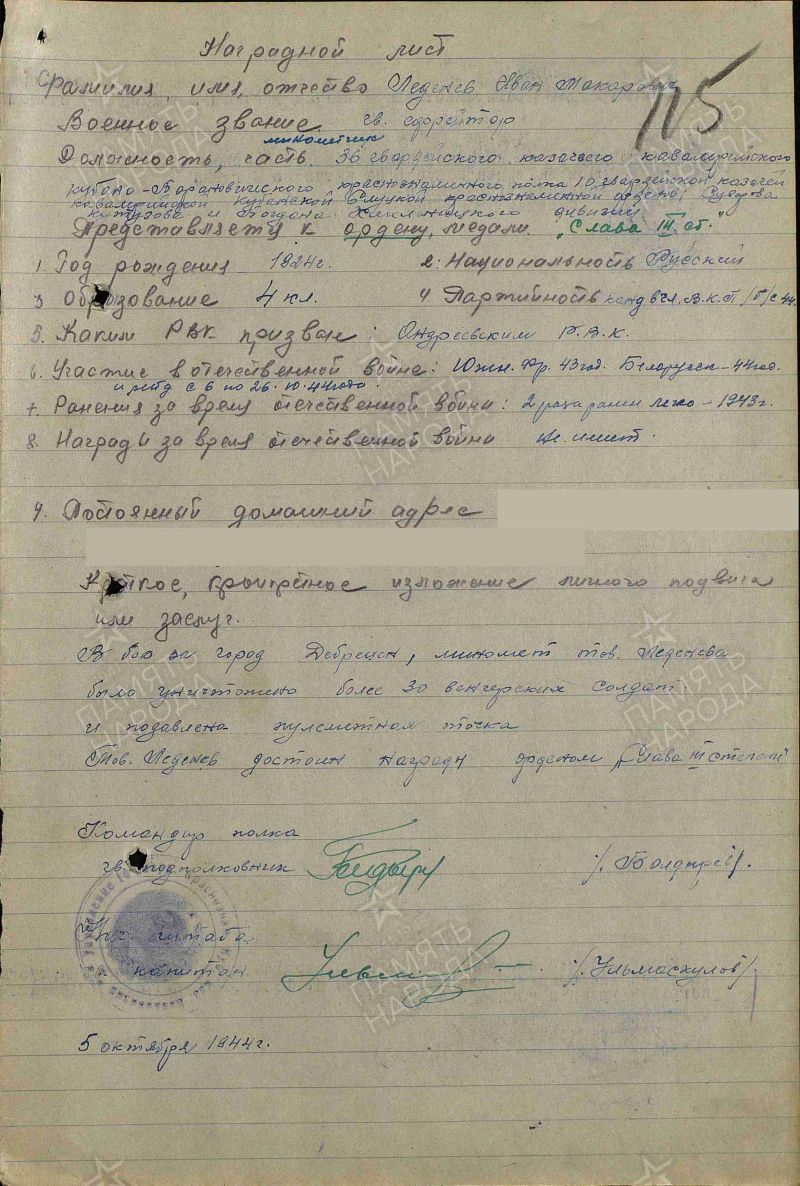 Наградной лист
125
Фамилия, имя, отчество Леденев Иван Макарович
Военное звание гв. ефрейтор
минометчик
Должность, часть 36 гвардейского казачьего кавалерийского
Кубано-Барановичского краснознаменного полка 10 гвардейской казачей
кавалерийской Кубанской Слуцкой краснознаменной орденов, Суворова
Кутузова и Богдана Хмельницкого дивизии
Представляется к ордену, медали "Слава III ст."
1. Год рождения 1924г. 2. Национальность Русский
3 Образование 4 кл. 4 Партийность канд в чл. В.К.П /б/ с 44
5. Каким РВК призван: Андреевским Р.В.К.
6. Участие в отечественной войне: Южн. Фр. 43 год. Белорусск - 44 год.
и рейд с 6 по 26. 10. 44 года.
7. Ранения за время отечественной войни: 2 раза ранен легко - 1943 г.
8. Награди за время отечественной войни не имеет.
9. Постоянный домашний адрес
Краткое, конкретное изложение личного подвига
или заслуг.
В бою за город Дебрецен, миномет тов. Леденева
было уничтожено более 30 венгерских солдат
и подавлена пулеметная точка
Тов. Леденев достоин награди орденом "Слава III степени"
Командир полка
гв. подполковник /. Болдирев/.
Нач. штаба
капитан /. Ульмаскулов/.
5 октября 1944г.
ПАМЯТЬ НАРОДА